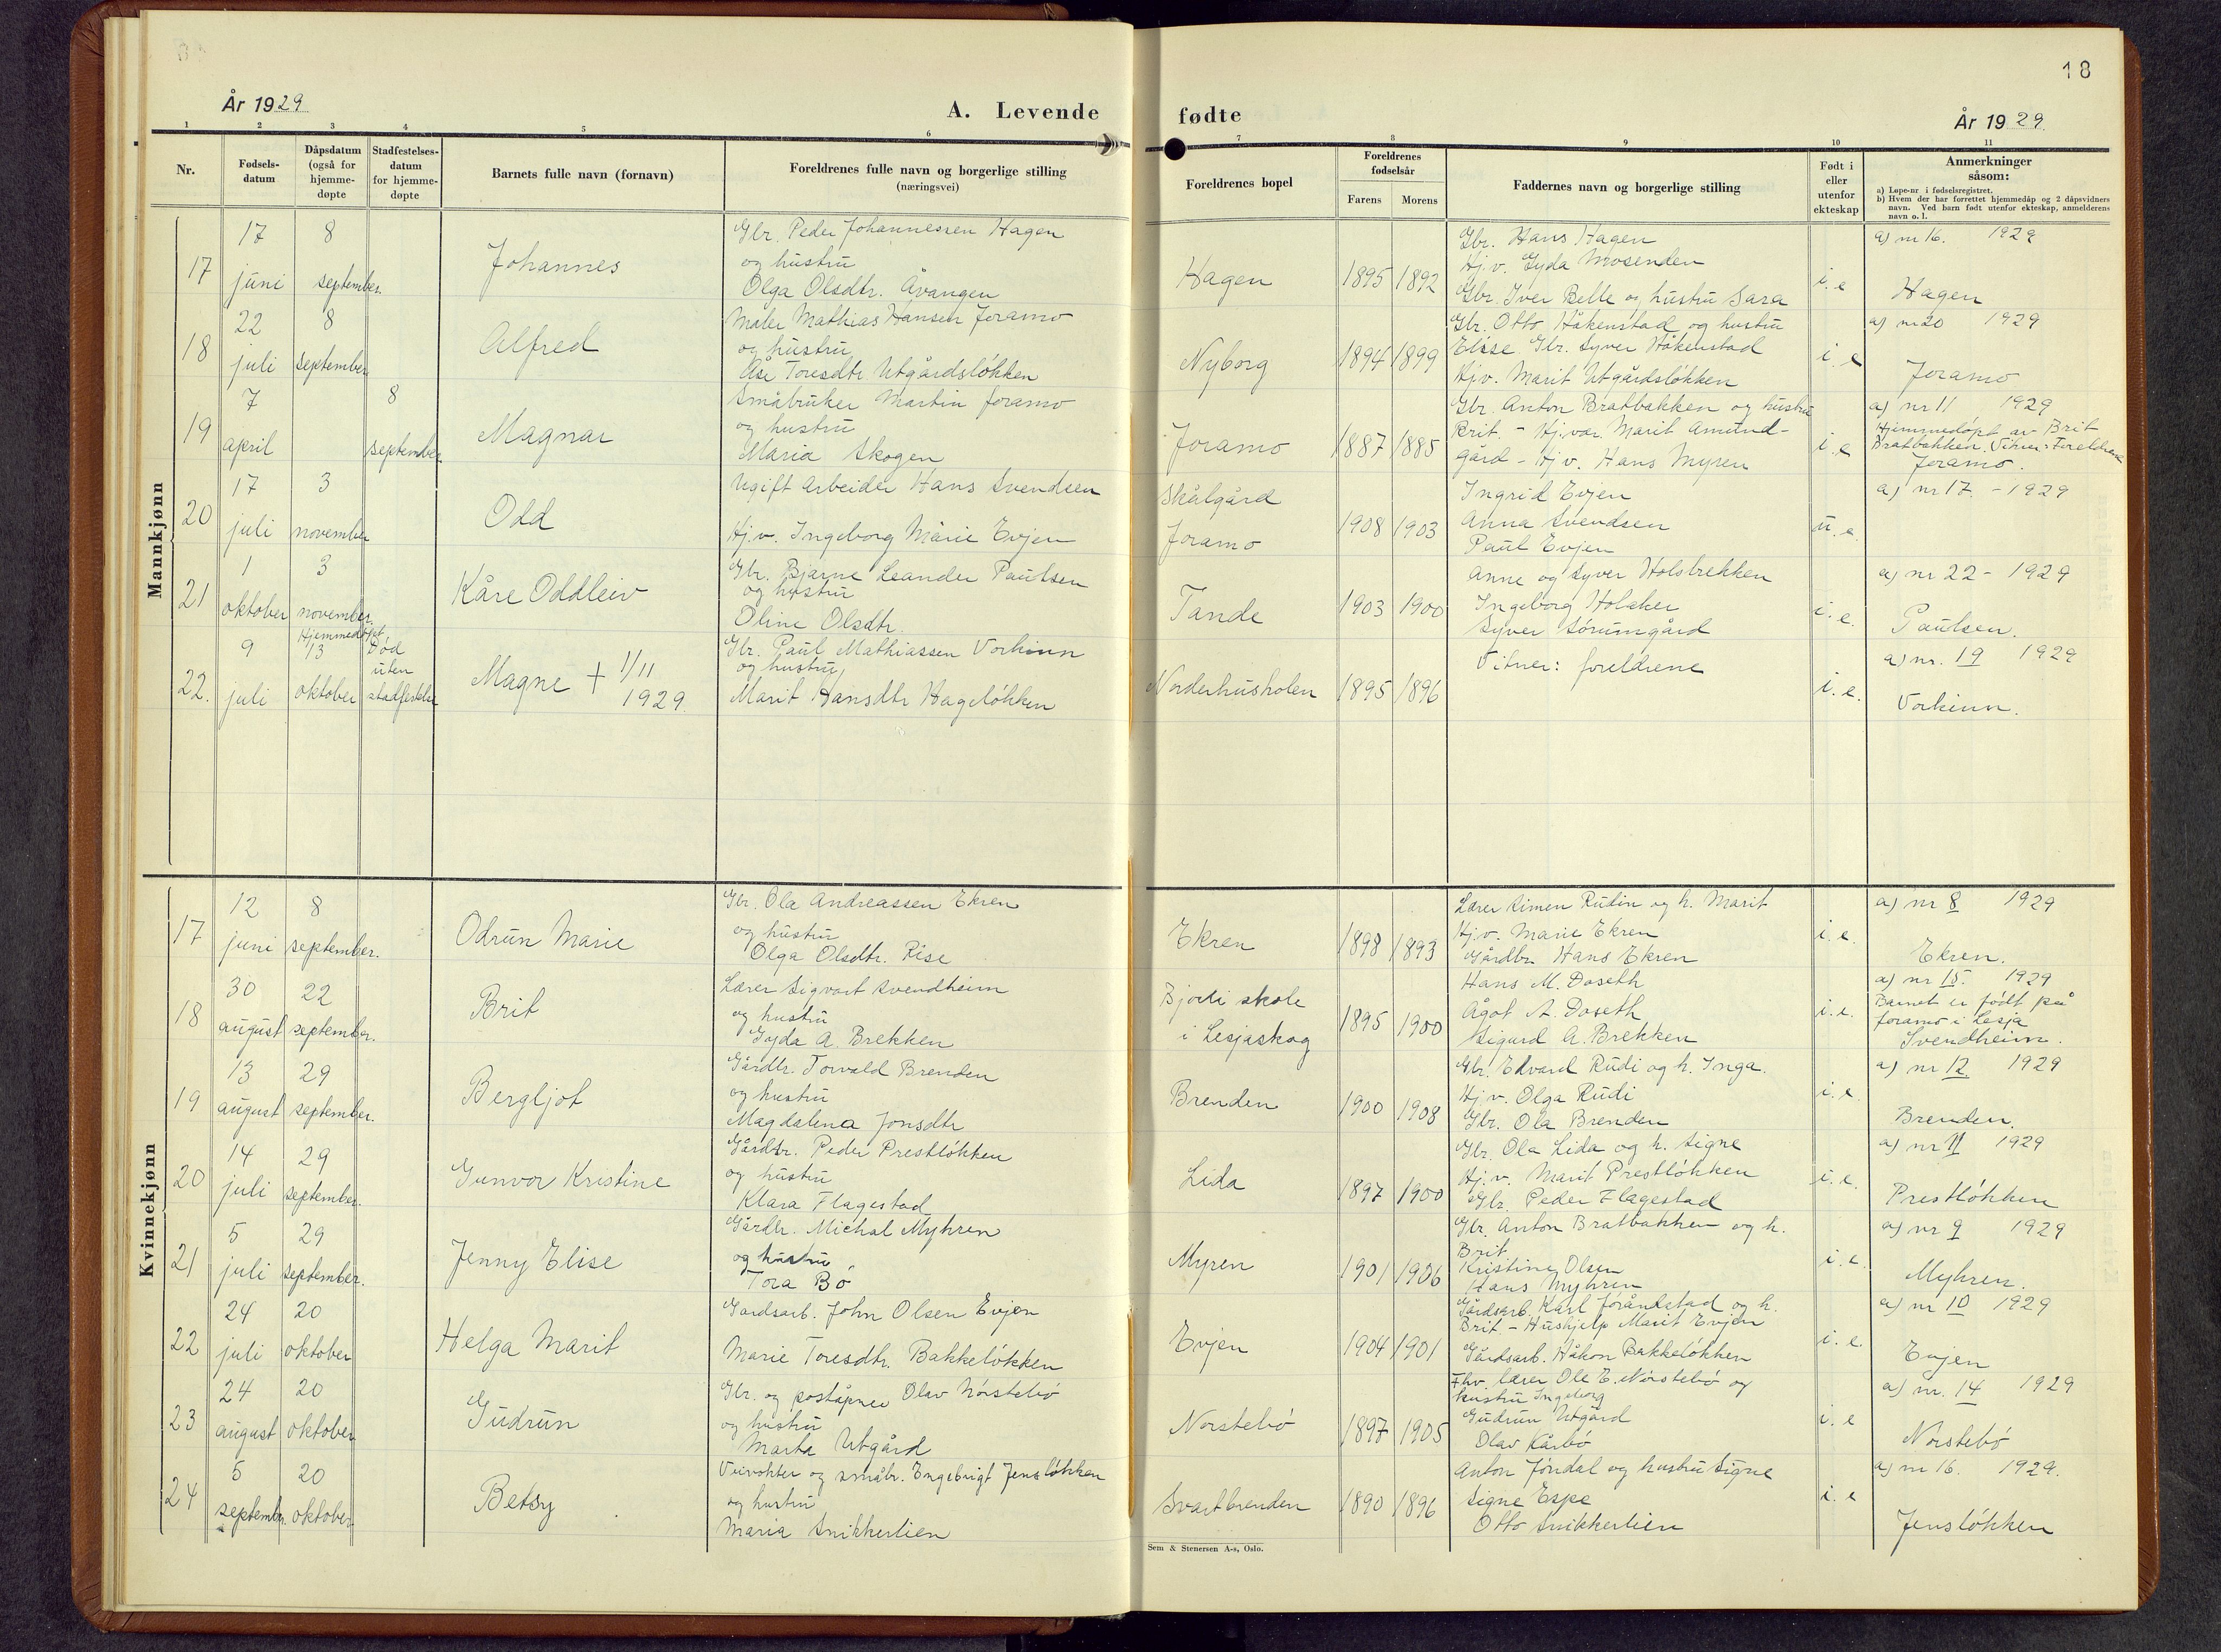 År 1929
A. Levende
1
2
3
4
5
6
Nr.
Fødsels-
datum
Dåpsdatum
(også for
hjemme-
døpte
Stadfestelses-
datum
for hjemme-
døpte
Barnets fulle navn (fornavn)
Foreldrenes fulle navn og borgerlige stilling
(næringsvei)
Mannkjønn
17
17
juni
8
september.
Johannes
Gbr. Peder Johannessen Hagen
og hustru
Olga Olsdtr. Åvangen
18
22
juli
8
september
Alfred
Maler Mathias Hansen Joramo
og hustru
Åse Toresdtr Utgårdsløkken
19
7
april
8
september
Magnar
Småbruker Martin Joramo
og hustru
Maria Skogen
20
17
juli
3
november
Odd
Ugift arbeider Hans Svendsen
Hj.v. Ingeborg Marie Evjen
21
1
oktober
3
november.
Kåre Oddleiv
Gbr. Bjarne Leander Paulsen
og hustru
Oline Olsdtr.
22.
9
juli
Hjemmedøpt
13
oktober
Død
uten
stadfestelse
Magne + 1/11
1929.
Gbr. Paul Mathiassen Vorkinn
og hustru
Marit Hansdtr Hageløkken
Kvinnekjønn
17
12
juni
8
september.
Odrun Marie
Gbr. Ola Andreassen Ekren
og hustru
Olga Olsdtr. Rise
18
30
august
22
september.
Brit
Lærer Sigvart Svendheim
og hustru
Gyda A. Brekken
19
13
august
29
september.
Bergljot
Gårdbr. Torvald Brenden
og hustru
Magdalena Jonsdtr
20
14
juli
29
september.
Gunvor Kristine
Gårdbr. Peder Prestløkken
og hustru
Klara Flagestad
21
5
juli
29
september.
Jenny Elise
Gårdbr. Michal Myhren
og hustru
Tora Bø
22
24
juli
20
oktober
Helga Marit
Gardsarb. John Olsen Evjen
Marie Toresdtr. Bakkeløkken
23
24
august
20
oktober
Gudrun
Gbr. og poståpner Olav Norstebø
og hustru
Marta Utgård
24
5
septembr.
20
oktober.
Betsy
Veivokter og småbr. Engebrigt Jensløkken
og hustru
Maria Snikkerlien
18
fødte
År 1929.
7
8
9
10
11
Foreldrenes bopel
Foreldrenes
fødselsår
Farens
Morens
Faddernes navn og borgerlige stilling
Født i
eller
utenfor
ekteskap
Anmerkninger
såsom:
a) Løpe-nr i fødselsregistret.
b) Hvem der har forrettet hjemmedåp og 2 dåpsvidners
navn. Ved barn født utenfor ekteskap, anmelderens
navn o. l.
Hagen
1895
1892
Gbr. Hans Hagen
Hj.v. Gyda Mosenden
Gbr. Iver Belle og hustru Sara
i. e
a) nr 16. 1929
Hagen
Nyborg
1894
1899
Gbr. Otto Håkenstad og hustru
Elise. Gbr. Syver Håkenstad
Hj.v. Marit Utgårdsløkken
i. e
a) nr 20 1929
Joramo
Joramo
1887
1885
Gbr. Anton Bratbakken og hustru
Brit. - Hj.var. Marit Amund-
gård - Hj v. Hans Myren
i. e
a) nr 11 1929
Hjemmedøpt av Brit
Bratbakken. Vitner: Foreldrene
Joramo.
Skålgård
Joramo
1908
1903
Ingrid Evjen
Anna Svendsen
Paul Evjen
u. e.
a) nr 17. - 1929
Tande
1903
1900
Anne og Syver Holsbrekken
Ingeborg Holaker
Syver Sørumgård
i. e.
a) nr 22 - 1929
Paulsen.
Norderhusholen
1895
1896
Vitner: foreldrene
i. e.
a) nr. 19 1929
Vorkinn.
Ekren
1898
1893
Lærer Simen Rudin og h. Marit
Hj.v. Marie Ekren
Gårdbr. Hans Ekren
i. e.
a) nr 8 1929
Ekren.
Bjorli skole
i Lesjaskog
1895
1900
Hans M. Doseth
Ågot A. Doseth
Sigurd A. Brekken
i. e.
a) nr 15. 1929
Barnet er født på
Joramo i Lesja
Svendheim.
Brenden
1900
1908
Gbr. Edvard Rudi og h. Inga.
Hj.v. Olga Rudi
Gbr. Ola Brenden
i. e.
a) nr 12 1929
Brenden.
Lida
1897
1900
Gbr. Ola Lida og h. Signe
Hj.v. Marit Prestløkken
Gbr. Peder Flagestad
i. e.
a) nr 11 1929
Prestløkken
Myren
1901
1906
Gbr. Anton Bratbakken og h.
Brit
Kristine Olsen
Hans Myhren
i. e.
a) nr 9 1929
Myhren.
Evjen
1904
1901
Gårdsarb. Karl Jorånstad og h.
Brit - Hushjelp Marit Evjen
Gårdsarb. Håkon Bakkeløkken
i. e.
a) nr 10 1929
Evjen
Norstebø
1897
1905
Fhv. lærer Ole E. Norstebø og
hustru Ingeborg
Gudrun Utgård
Olav Kårbø
i. e
a) nr. 14 1929
Norstebø
Svartbrenden
1890
1896
Anton Jøndal og hustru Signe
Signe Espe
Otto Snikkerlien
i. e
a) nr 16. 1929.
Jensløkken
Sem & Stenersen A-s, Oslo.